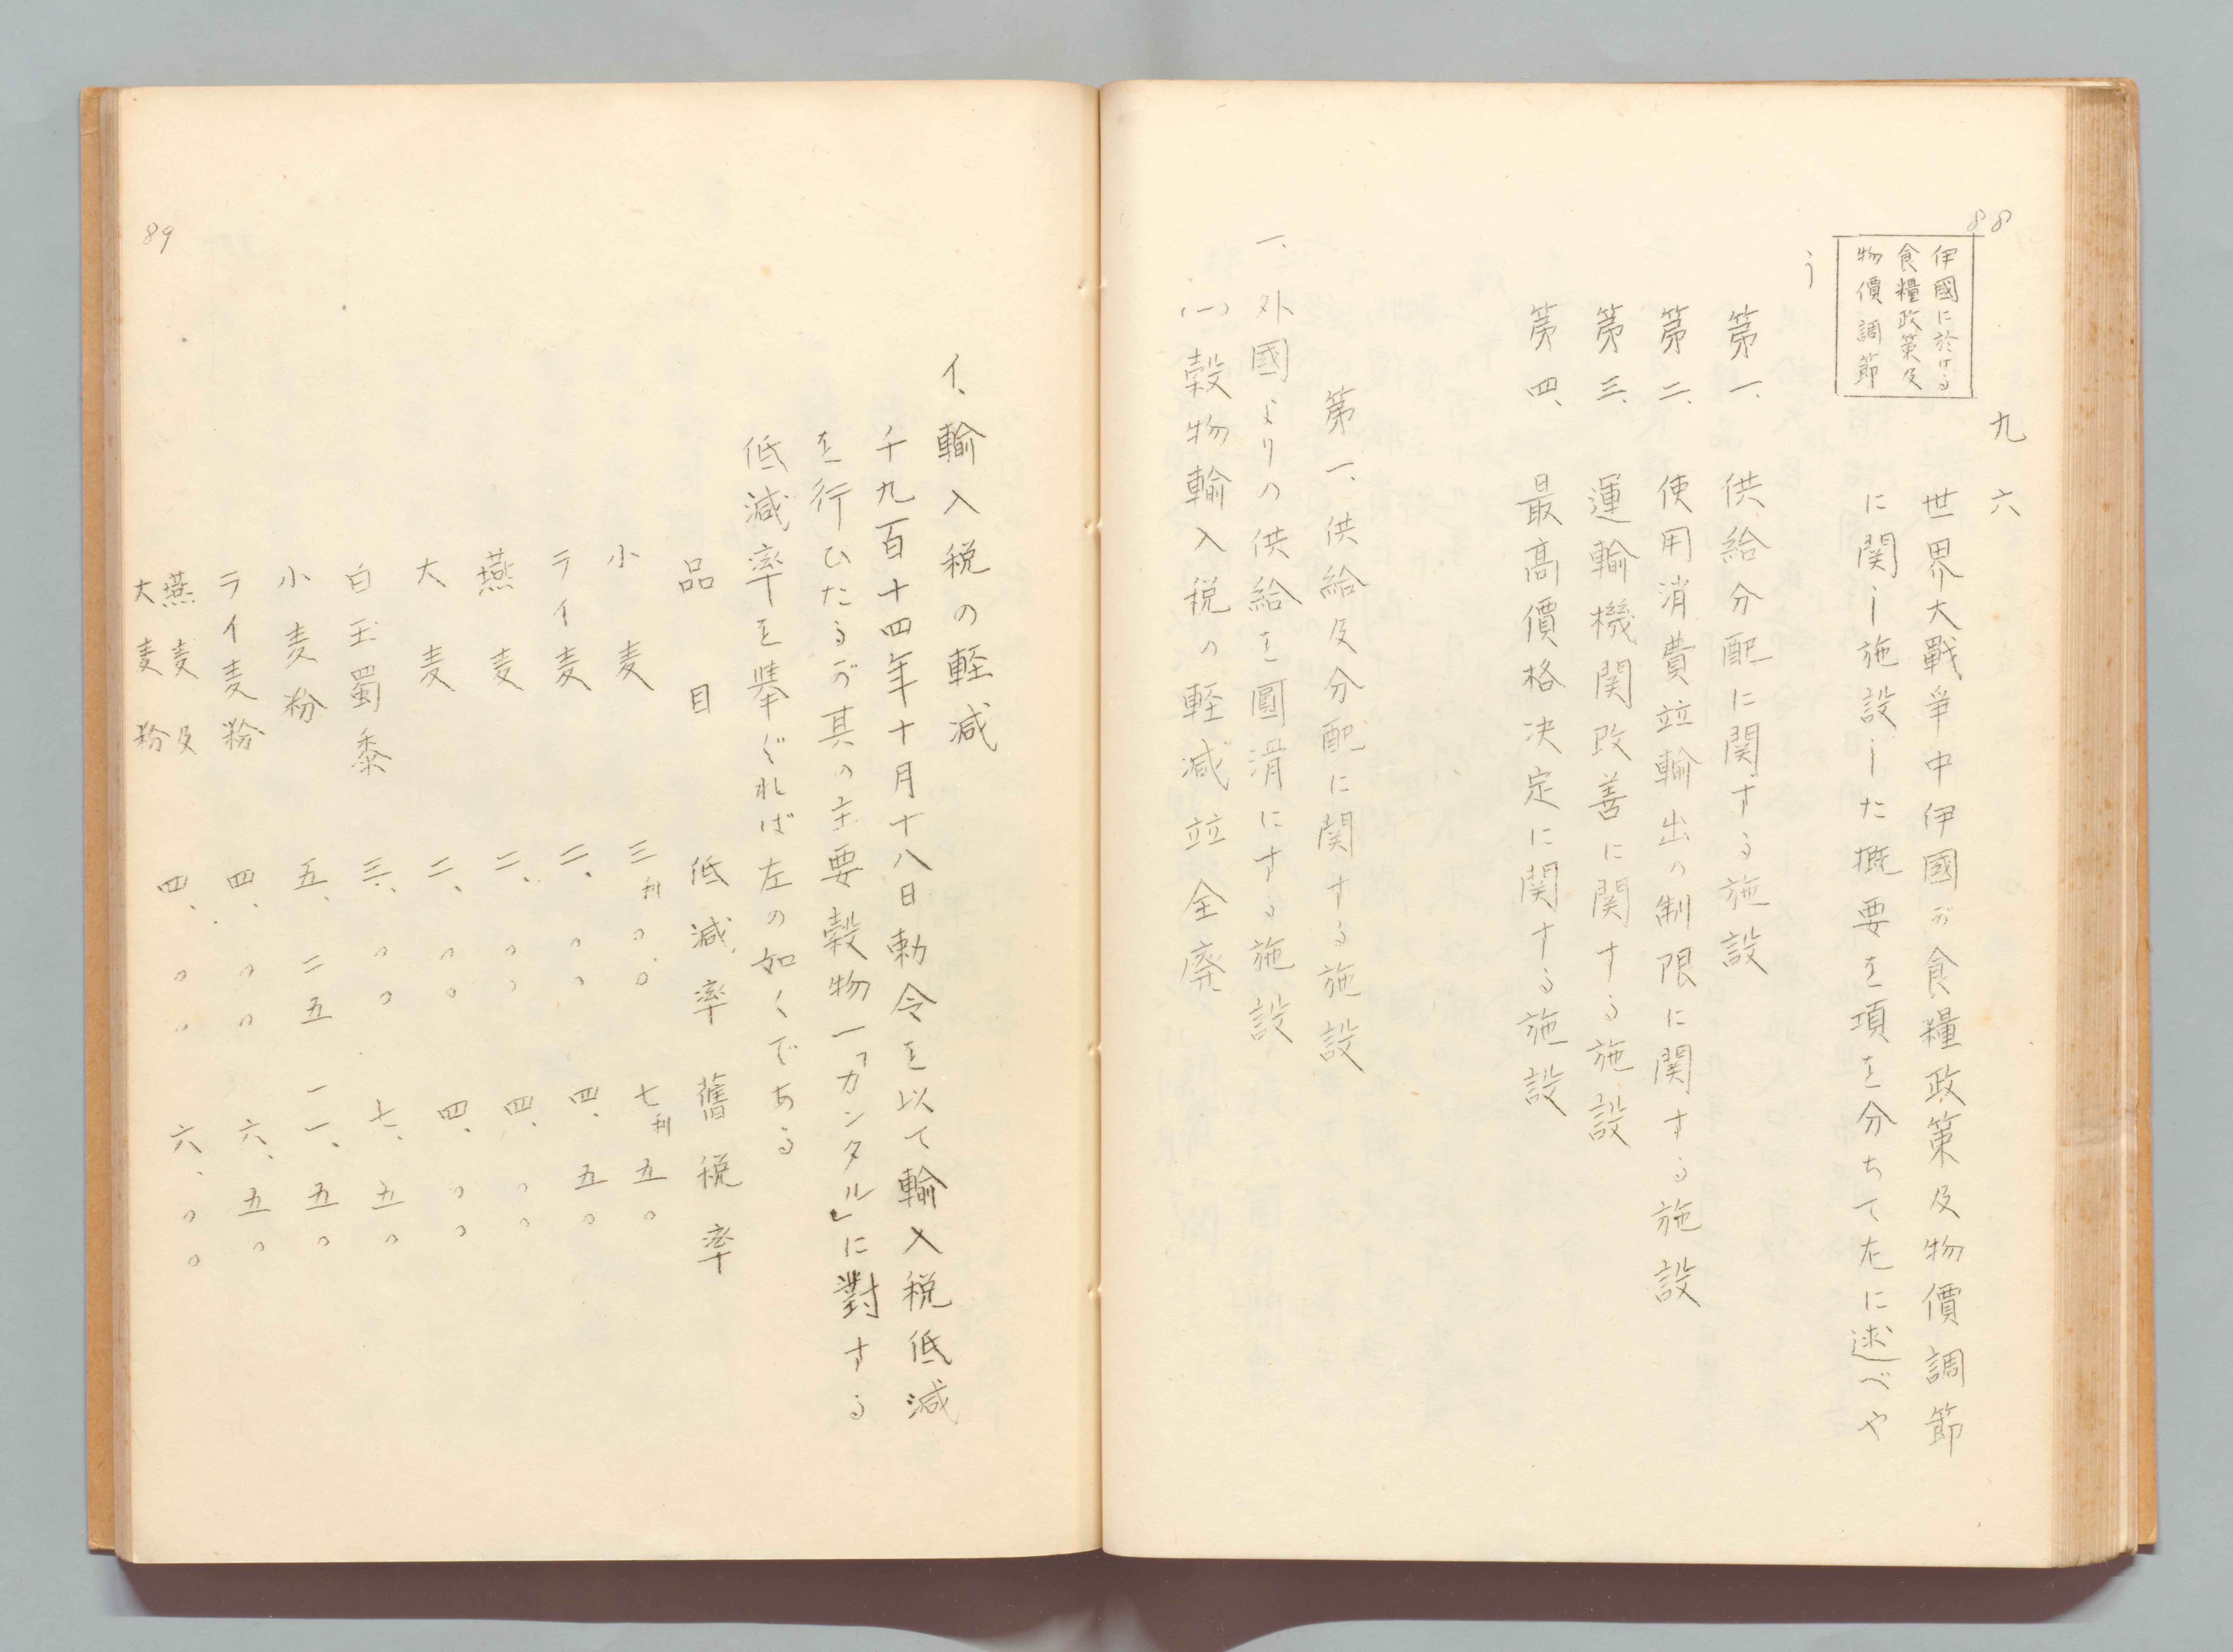 88
伊國に於ける
食糧政策及
物價調節
九六
世界大戰爭中伊國が食糧政策及物價調節
に関し施設した概要を項を分ちて左に述べや
う
第一、供給分配に関する施設
第二、使用消費竝輸出の制限に関する施設
第三、運輸機関改善に関する施設
第四、最高價格決定に関する施設
第一、供給及分配に関する施設
一、外國よりの供給を圓滑にする施設
(一)穀物輸入税の軽減竝全廃
イ、輸入税の軽減
千九百十四年十月十八日勅令を以て輸入税低減
を行ひたるが其の主要穀物一「カンタル」に對する
低減率を擧ぐれば左の如くである
品目 低減率 舊税率
小麦 三利〇〇 七利五〇
ライ麦 二、〇〇 四、五〇
燕麦 二、〇〇 四、〇〇
大麦 二、〇〇 四、〇〇
白玉蜀黍 三、〇〇 七、五〇
小麦粉 五、二五 一一、五〇
ライ麦粉 四、〇〇 六、五〇
燕麦及
大麦粉 四、〇〇 六、〇〇
89